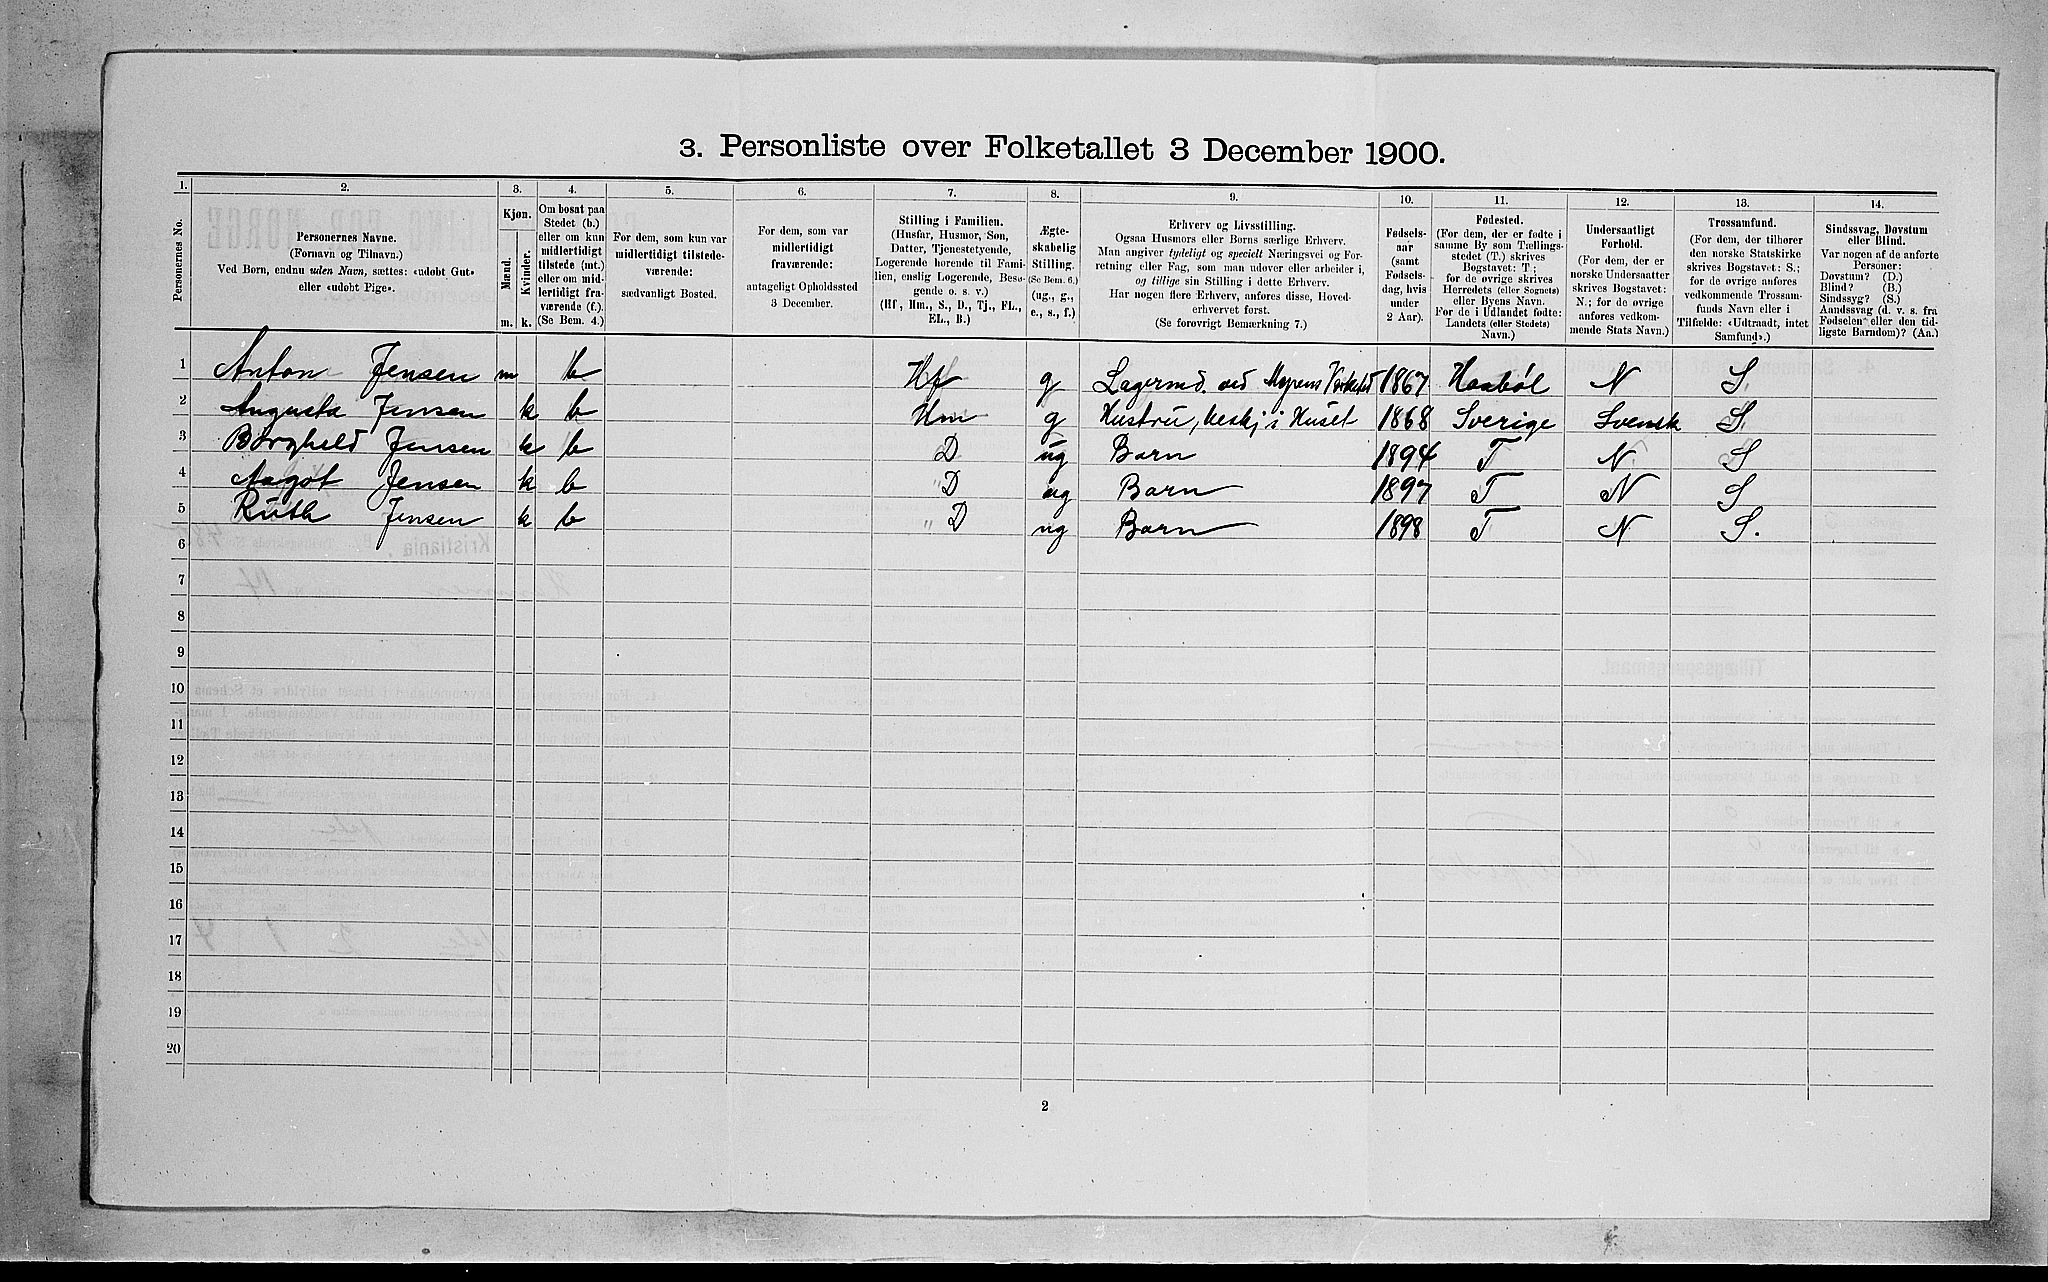 3. Personliste over Folketallet 3 December 1900.
1. 2. 3. 4. 5. 6. 7. 8. 9. 10. 11. 12. 13. 14.
Personernes No.
Personernes Navne.
(Fornavn og Tilnavn.)
Ved Børn, endnu uden Navn, sættes: «udøbt Gut»
eller «udøbt Pige».
Kjøn.
Mænd.
Kvinder.
m. k.
Om bosat paa
Stedet (b.)
eller om kun
midlertidigt
tilstede (mt.)
eller om mid-
lertidigt fra-
værende (f.).
(Se Bem. 4.)
For dem, som kun var
midlertidigt tilstede-
værende:
sædvanligt Bosted.
For dem, som var
midlertidigt
fraværende:
antageligt Opholdssted
3 December.
Stilling i Familien.
(Husfar, Husmor, Søn,
Datter, Tjenestetyende,
Logerende hørende til Fami-
lien, enslig Logerende, Besø-
gende o. s. v.)
(Hf, Hm., S., D., Tj., FL.,
EL., B.)
Ægte-
skabelig
Stilling.
(Se Bem. 6.)
(ug., g.,
e., s., f.)
Erhverv og Livsstilling.
Ogsaa Husmors eller Børns særlige Erhverv.
Man angiver tydeligt og specielt Næringsvei og For-
retning eller Fag, som man udøver eller arbeider i,
og tillige sin Stilling i dette Erhverv.
Har nogen flere Erhverv, anføres disse, Hoved-
erhvervet først.
(Se forøvrigt Bemærkning 7.)
Fødsels-
aar
(samt
Fødsels-
dag, hvis
under
2 Aar).
Fødested.
(For dem, der er fødte i
samme By som Tællings-
stedet (T.) skrives
Bogstavet: T;
for de øvrige skrives
Herredets (eller Sognets)
eller Byens Navn.
For de i Udlandet fødte:
Landets (eller Stedets)
Navn.)
Undersaatligt
Forhold.
(For dem, der er
norske Undersaatter
skrives Bogstavet:
N.; for de øvrige
anføres vedkom-
mende Stats Navn.)
Trossamfund.
(For dem, der tilhører
den norske Statskirke
skrives Bogstavet: S.;
for de øvrige anføres
vedkommende Trossam-
funds Navn eller i
Tilfælde: «Udtraadt, intet
Samfund».)
Sindssvag, Døvstum
eller Blind.
Var nogen af de anførte
Personer:
Døvstum? (D.)
Blind? (B.)
Sindssyg? (S.)
Aandssvag (d. v. s. fra
Fødselen eller den tid-
ligste Barndom)? (Aa.)
1 Anton Jensen m b Hf g Lagermd. ved 1867 Haabøl N S.
2 Augusta Jensen k b Hm g Hustru, besk j i Huset 1868 Sverige Svensk S.
3 Borghild Jensen k b D ug Barn 1894 T N. S
4 Aagot Jensen k b " D ug Barn 1897 T N S
5 Ruth Jensen k b " D ug Barn 1898 T N S.
6
7
8
9
10
11
12
13
14
15
16
17
18
19
20
2